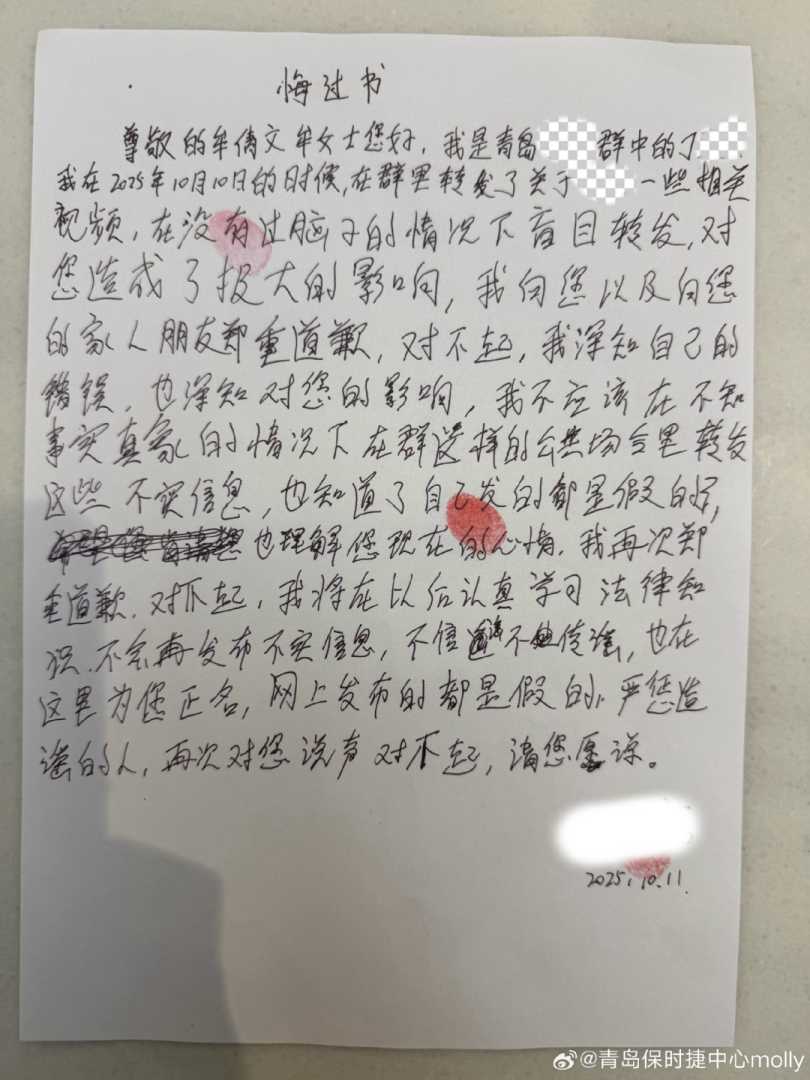 悔过书
尊敬的牟倩文牟女士您好，我是青岛 群中的丁
我在2025年10月10日的时候，在群里转发了关于 一些相关
视频，在没有过脑子的情况下盲目转发，对
您造成了极大的影响，我向您以及向您
的家人朋友郑重道歉，对不起，我深知自己的
错误，也深知对您的影响，我不应该在不知
事实真象的情况下在群这样的公共场合里转发
这些不实信息，也知道了自己发的都是假的，
也理解您现在的心情。我再次郑
重道歉。对不起，我将在以后认真学习法律知
识。不会再发布不实信息，不信谣不传谣，也在
这里为您正名，网上发布的都是假的，严惩造
谣的人，再次对您说声对不起，请您原谅。
2025.10.11
@青岛保时捷中心molly